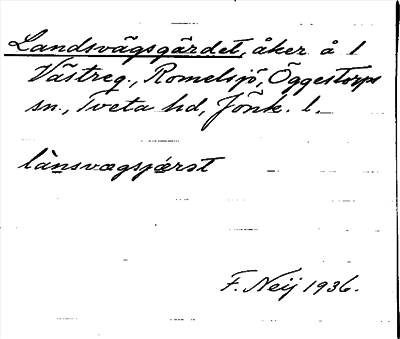 Landsvägsgärdet, åker å 1
Västreg., Romelsjö, Öggestorps
sn., Tveta hd, Jönk. l.
lànsvægsjærət
F. Neij 1936.